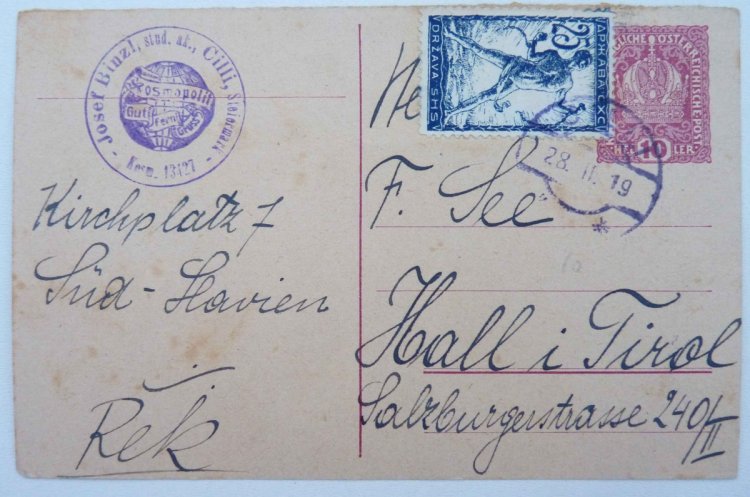 Josef Binzl, stud. ak., Cilli, Steiermark
Kosmopolit
Gut
fern
Kosm. 13427
Kirchplatz 7
Süd-Slavien
Řek
25
ДРЖАВА СХС
DRŽAVA SHS
LICHE ÖSTERREICHISCHE POST
HELLER
10
28. II. 19
*
F. See
Hall i Tirol
Salzburgerstrasse 240/II